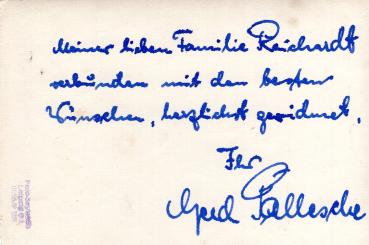 Meiner lieben Familie Reichardt
verbunden mit den besten
Wünschen, herzlichst gewidmet.
Ihr
Gerd Pallesche